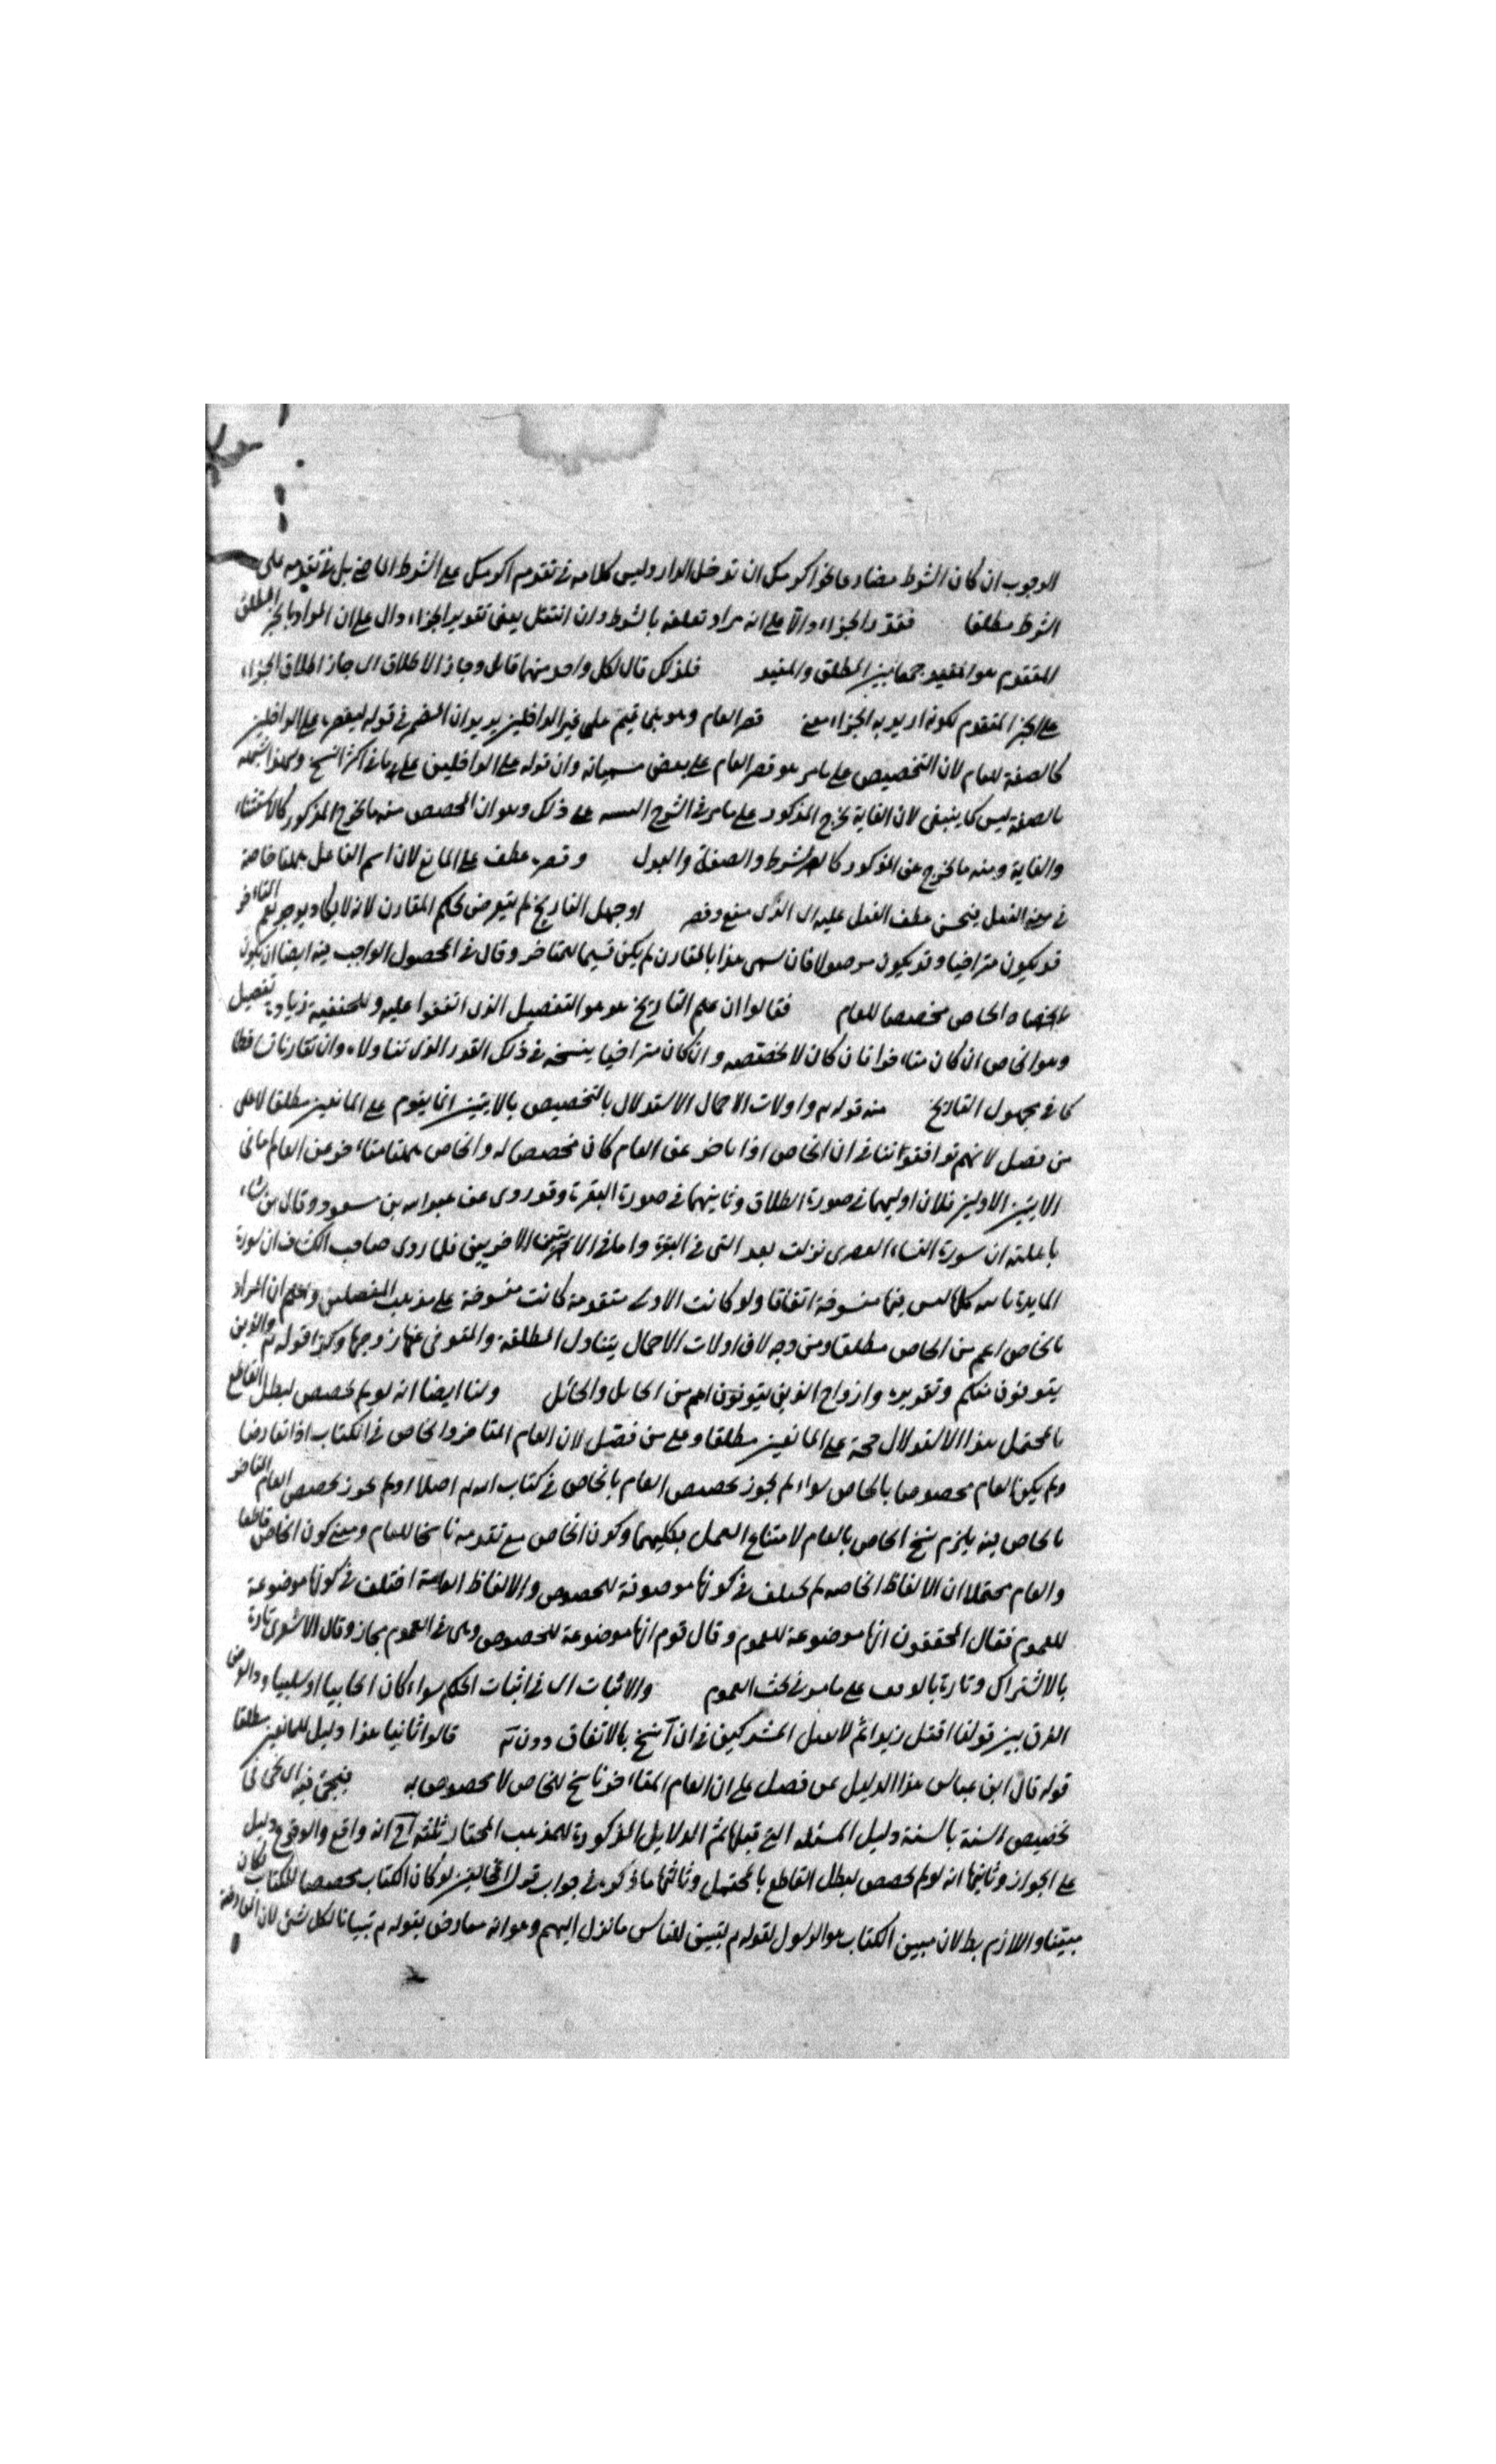 الوجوب ان كان الشرط مضارعا نحو اكرمك ان تدخل الدار وليس كلامه في تقديم اكرمك على الشرط الماضي بل في تقديمه على
الشرط مطلقا فقدر الجزاء دالا على انه مراد تعلقه بالشرط وان انتقل يعني تقدير الجزاء دال على ان المراد بالخبر المطلق
المتقدم هو المقيد جمعا بين المطلق والمقيد فلذلك قال لكل واحد منهما قائل وجاز الاطلاق اى جاز اطلاق الجزاء
على الخبر المتقدم لكونه اريد به الجزاء معنى قصر العام وهو بنى تميم على غير الداخلين يريد ان الضمير في قوله ليقصره على الداخلين
كالصفة للعام لان التخصيص على ما مر هو قصر العام على بعض مسمياته وان قوله على الداخلين على ما في اكثر النسخ
بالصفة ليس كما ينبغي لان الغاية تخرج المذكور على ما مر في الشرح على ذلك وهو ان المخصص منه ما يخرج المذكور كالاستثناء
والغاية ومنه ما يخرج غير المذكور كالشرط والصفة والبدل وقصر عطف على المانع لان اسم الفاعل
في معنى الفعل فيحسن عطف الفعل عليه اى الذى منع وقصر او جهل التاريخ لم يتعرض لحكم المقارن لانه لا يكاد يوجد التاخر
قد يكون متراخيا وقد يكون موصولا فان سمى هذا بالمقارن لم يكن قسيما للمتاخر وقال في المحصول الواجب فيه ايضا ان يكون
الخاص مخصصا للعام فقالوا ان علم التاريخ هو هو التفصيل الذى اتفقوا عليه وللحنفية زيادة تفصيل
وهو الخاص ان كان متاخرا فان كان لا يخصصه وان كان متراخيا ينسخه في ذلك القدر الذى تناولاه وان تقارنا تساقطا
كما في مجهول التاريخ منه قوله تع واولات الاحمال الاستدلال بالتخصيص بالايتين انما يقوم على المانعين مطلقا لا على
من فصل لانهم توافقوننا في ان الخاص اذا تاخر عن العام كان مخصصا له والخاص متاخر عن العام اما في
الايتين الاوليين فلان اوليهما في سورة الطلاق وثانيهما في سورة البقرة وقد روى عن عبد الله بن مسعود وقال من شاء
باهلته ان سورة النساء القصرى نزلت بعد التى في البقرة واما في الايتين الاخريين فلما روى صاحب الكشاف ان سورة
المايدة ليس فيها منسوخة اتفاقا ولو كانت الاولى متقدمة كانت منسوخة على مذهب المفصلين واعلم ان المراد
بالخاص اعم من الخاص مطلقا ومن وجه لان اولات الاحمال يتناول المطلقة والمتوفى عنها زوجها وكذا قوله تع والذين
يتوفون منكم وتقديره وازواج الذين يتوفون اعم من الحامل والحائل ولنا ايضا انه لو لم يخصص لبطل القاطع
بالمحتمل هذا الاستدلال حجة على المانعين مطلقا وعلى من فصل لان العام المتاخر والخاص في الكتاب اذا تعارضا
ولم يكن العام مخصوصا بالخاص سواء لم يجوز تخصيص العام بالخاص في كتاب الله تع اصلا او لم يجوز تخصيص العام المتاخر
بالخاص فيه يلزم نسخ الخاص بالعام لامتناع العمل بكليهما وكون الخاص مع تقدمه ناسخا للعام ومعنى كون الخاص قاطعا
والعام محتملا ان الالفاظ الخاصة لم يختلف في كونها موضوعة للخصوص والالفاظ العامة اختلف في كونها موضوعة
للعموم فقال المحققون انها موضوعة للعموم وقال قوم انها موضوعة للخصوص وهى في العموم مجاز وقال الاشعرى تارة
بالاشتراك وتارة بالوقف على ما مر في بحث العموم والاثبات اى في اثبات الحكم سواء كان ايجابيا او سلبيا
الفرق بين قولنا اقتل زيدا ثم لا تقتل المشركين في ان نسخ بالاتفاق دون قالوا ثانيا هذا دليل للمانعين مطلقا
قوله قال ابن عباس هذا الدليل من فصل على ان العام المتاخر ناسخ للخاص لا مخصوص به فيجئ فيه
تخصيص السنة بالسنة دليل المسئلة التى قبلها ثم الدلايل المذكورة للمذهب المختار ثلثة انه واقع والوقوع دليل
على الجواز وثانيها انه لو لم يخصص لبطل القاطع بالمحتمل وثالثها ما ذكر في جواب قول المخالفين لو كان الكتاب مخصصا للكتاب لكان
مبينا واللازم بط لان مبين الكتاب هو الرسول لقوله تع لتبين للناس ما نزل اليهم وهو انه معارض بقوله تع تبيانا لكل شئ لان